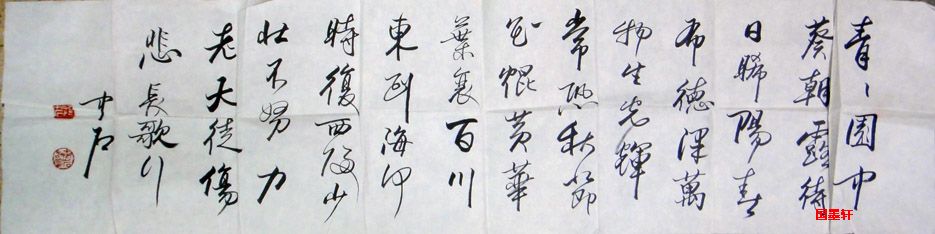 青〻園中
葵朝露待
日晞陽春
布德澤萬
物生光輝
常恐秋節
至焜黄華
葉衰百川
東到海何
時復西歸少
壯不努力
老大徒傷
悲 長歌行
中石
国墨轩